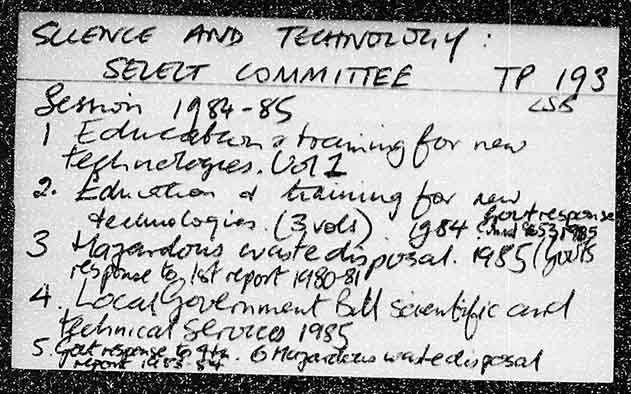 SCIENCE AND TECHNOLOGY:
SELECT COMMITTEE TP 193
LSB
Session 1984-85
1 Education & training for new
technologies. Vol 1
2. Education & training for new
technologies. (3 vols). 1984 Govt response
Cmnd 9853 1985
3 Hazardous waste disposal. 1985 (Govt's
response to 1st report 1980-81
4. Local Government Bill scientific and
technical services 1985
5. Govt response to 4th 6 Hazardous waste disposal
report 1983-84